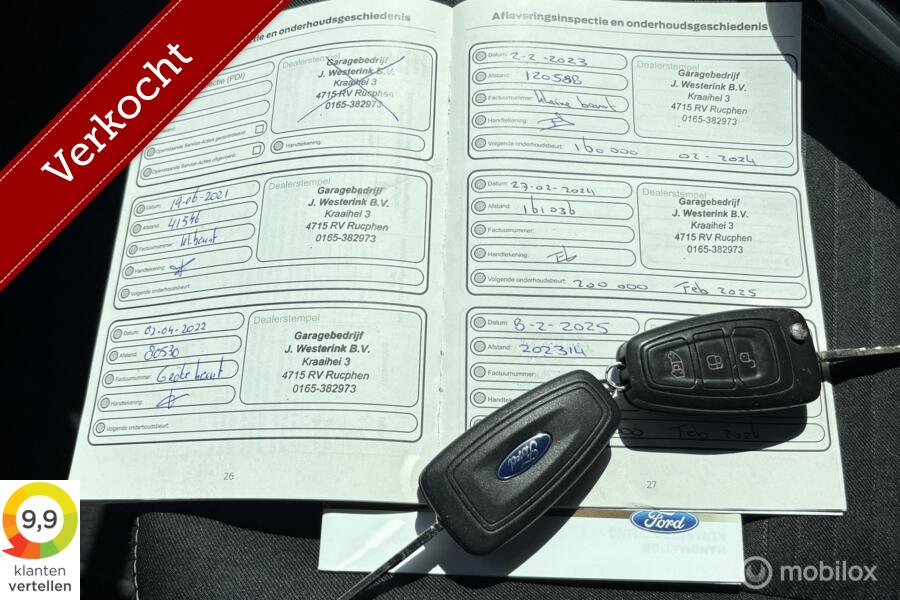 Verkocht
ctie en onderhoudsgeschiedenis
ectie (PDI)
Dealerstempel
Garagebedrijf
J. Westerink B.V.
Kraaihei 3
4715 RV Rucphen
0165-382973
Openstaande Service-Acties gecontroleerd:
Openstaande Service-Acties uitgevoerd:
Handtekening:
Datum: 19-06-2021
Afstand: 41346
Factuurnummer: kl. beurt
Handtekening:
Volgende onderhoudsbeurt:
Dealerstempel
Garagebedrijf
J. Westerink B.V.
Kraaihei 3
4715 RV Rucphen
0165-382973
Datum: 07-04-2022
Afstand: 80530
Factuurnummer: Grote beurt
Handtekening:
Volgende onderhoudsbeurt:
Dealerstempel
Garagebedrijf
J. Westerink B.V.
Kraaihei 3
4715 RV Rucphen
0165-382973
26
Afleveringsinspectie en onderhoudsgeschiedenis
Datum: 2-2-2023
Afstand: 120588
Factuurnummer: kleine beurt
Handtekening:
Volgende onderhoudsbeurt: 160 000 02-2024
Dealerstempel
Garagebedrijf
J. Westerink B.V.
Kraaihei 3
4715 RV Rucphen
0165-382973
Datum: 27-02-2024
Afstand: 161036
Factuurnummer:
Handtekening:
Volgende onderhoudsbeurt: 200 000 Feb 2025
Dealerstempel
Garagebedrijf
J. Westerink B.V.
Kraaihei 3
4715 RV Rucphen
0165-382973
Datum: 8-2-2025
Afstand: 202314
Factuurnummer:
Handtekening:
Feb 2026
27
Ford
Ford
9,9
klanten
vertellen
mobilox